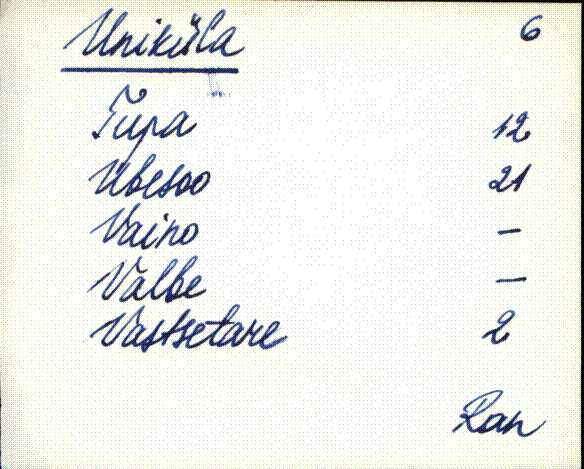 Uniküla 6
Tupa 12
Ubesoo 21
Vaino –
Valbe –
Vastsetare 2
Ran